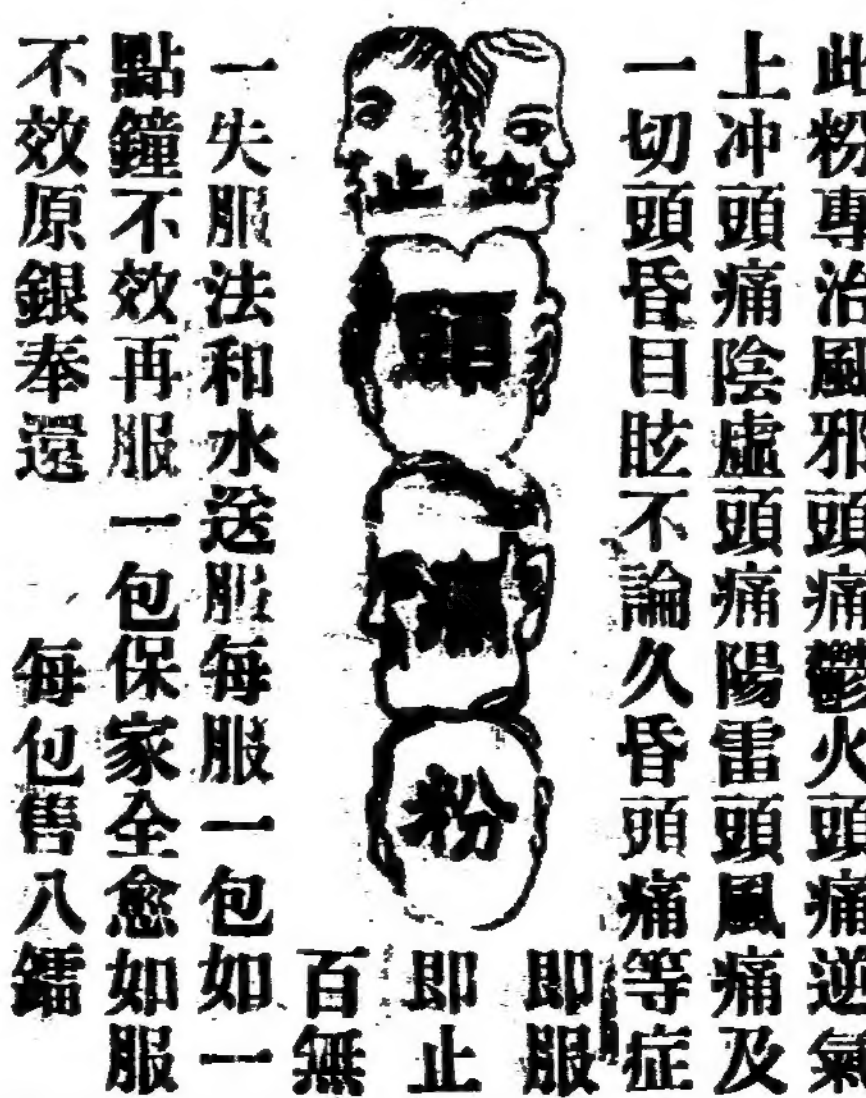 此粉專治風邪頭痛鬱火頭痛逆氣
上冲頭痛陰虛頭痛陽雷頭風痛及
一切頭昏目眩不論久昏頭痛等症
即服
立止頭痛粉
即止
百無
一失服法和水送服每服一包如一
點鐘不效再服一包保家全愈如服
不效原銀奉還 每包售八鐳